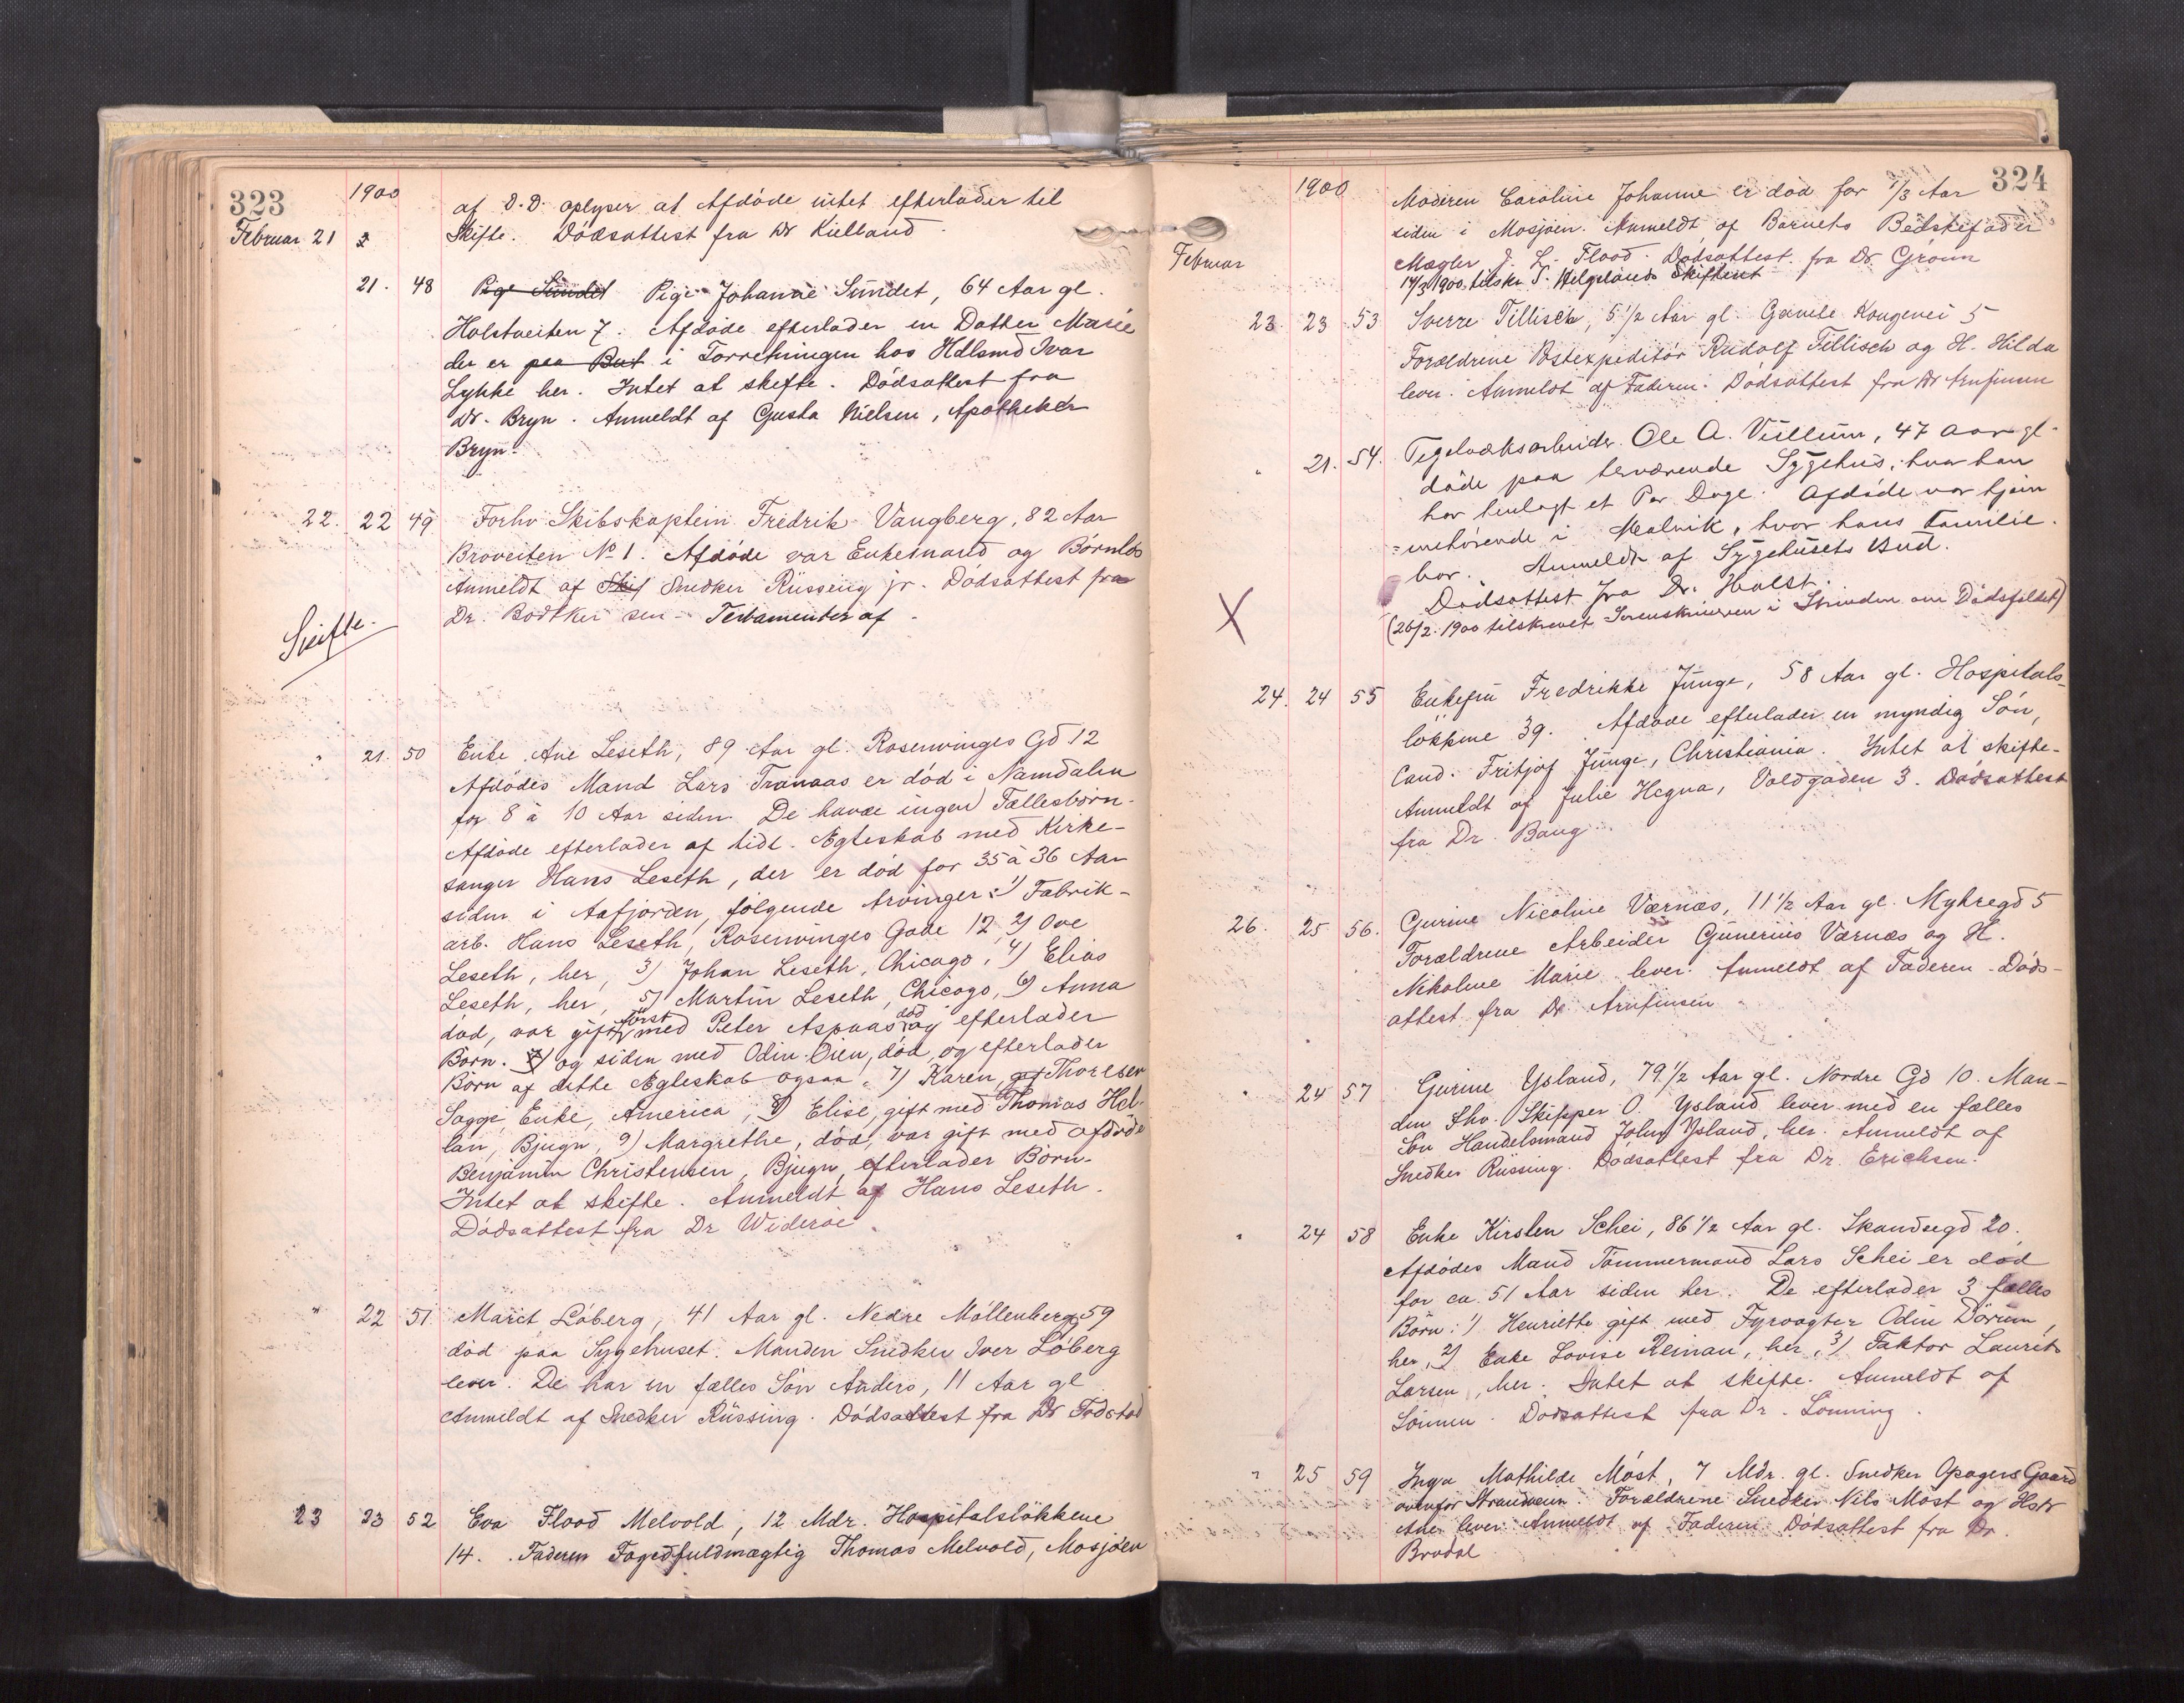 323
1900
Februar 21
af D.D. oplyser at Afdöde intet efterlader til
Skifte. Dödsattest fra Dr Kielland.
21. 48 Pige Sundet Pige Johanne Sundet, 64 Aar gl.
Holstveiten 7. Afdöde efterlader en Datter Marie
der er paa But i Forretningen hos Hdlsmd Ivar
Lykke her. Intet at skifte. Dödsattest fra
Dr. Bryn. Anmeldt af Gusta Nielsen, Apotheker
Bryn.
22. 22 49 Forhv Skibskaptein Fredrik Vangberg, 82 Aar
Broveiten No 1. Afdöde var Enkemand og Börnlös
Anmeldt af Skif Snedker Rüssing jr. Dödsattest fra
Dr. Bödtker sen - Testamenter af.
Skifte.
" 21. 50 Enke Ane Leseth, 89 Aar gl. Rosenvinges Gd 12
Afdödes Mand Lars Tranaas er död i Namdalen
for 8 à 10 Aar siden. De havde ingen Fællesbörn.
Afdöde efterlader af tidl. Egteskab med Kirke-
sanger Hans Leseth, der er död for 35 à 36 Aar
siden i Aafjorden, fölgende Arvinger: 1) Fabrik-
arb. Hans Leseth, Rosenvinges Gade 12, 2) Ove
Leseth, her, 3) Johan Leseth, Chicago, 4) Elias
Leseth, her, 5) Martin Leseth, Chicago, 6) Anna
död, var gift först med Peter Aspaas död og efterlader
Börn. 7) og siden med Odin Öien, död, og efterlader
Börn af dette Egteskab ogsaa. 7) Karen, gf Thoresen
Sagge, Enke, America, 8) Elise, gift med Thomas Hel-
lan, Bjugn, 9) Margrethe, död, var gift med afdöde
Benjamin Christensen, Bjugn, efterlader Börn.
Intet at skifte. Anmeldt af Hans Leseth.
Dödsattest fra Dr Wideröe.
" 22 51 Marit Löberg, 41 Aar gl. Nedre Möllenberg 59
död paa Sygehuset. Manden Snedker Iver Löberg
lever. De har en fælles Sön Anders, 11 Aar gl
Anmeldt af Snedker Rüssing. Dödsattest fra Dr Fodstad
23 23 52 Eva Flood Melvold, 12 Mdr. Hospitalslökkene
14. Faderen Fogedfuldmægtig Thomas Melvold, Mosjöen
324
1900
Februar
Moderen Caroline Johanne er död for 1/3 Aar
siden i Mosjöen. Anmeldt af Barnets Bedstefader
Mægler J. L. Flood. Dödsattest fra Dr. Grönn
14/3 1900 tilskr. S. Helgelands Skifteret
23. 23 53 Sverre Tillisch, 5 1/2 Aar gl. Gamle Kongevei 5
Forældrene Postexpeditör Rudolf Tillisch og H. Hilda
lever. Anmeldt af Faderen. Dödsattest fra Dr Arnfinsen
" 21. 54. Teglværksarbeider Ole A. Vullum, 47 Aar gl.
döde paa herværende Sygehus, hvor han
har henlagt et Par Dage. Afdöde var hjem
=mehörende i Malvik, hvor hans Familie
bor. Anmeldt af Sygehusets Bud.
Dödsattest fra Dr. Holst.
(26/2. 1900 tilskrevet Sorenskriveren i Strinden om Dödsfaldet)
X
24. 24 55 Enkefru Fredrikke Junge, 58 Aar gl. Hospitals-
lökkene 39. Afdöde efterlader en myndig Sön,
Cand. Fritjof Junge, Christiania. Intet at skifte.
Anmeldt af Julie Hegna, Voldgaden 3. Dödsattest
fra Dr. Bang.
26. 25 56. Gurine Nicoline Værnæs, 11 1/2 Aar gl. Myhregd 5
Forældrene Arbeider Gunerius Værnæs og H.
Nikoline Marie lever. Anmeldt af Faderen. Döds-
attest fra Dr Arnfinsen
" 24 57 Gurine Ysland, 79 1/2 Aar gl. Nordre Gd 10. Man-
den fhv. Skipper O. Ysland lever med en fælles
Sön Handelsmand John Ysland, her. Anmeldt af
Snedker Rüssing. Dödsattest fra Dr. Erichsen.
" 24 58 Enke Kirsten Schei, 86 1/2 Aar gl. Skandsegd 20.
Afdödes Mand Tömmermand Lars Schei er död
for ca. 51 Aar siden her. De efterlader 3 fælles
Börn: 1) Henriette gift med Fyrvogter Odin Dörum,
her, 2) Enke Lovise Reinau, her, 3) Faktor Laurits
Larsen, her. Intet at skifte. Anmeldt af
Sönnen. Dödsattest fra Dr. Lönning.
" 25 59 Inga Mathilde Möst, 7 Mdr. gl. Snedker Opagers Gaard
ovenfor Strandveien. Forældrene Snedker Nils Möst og Hstr
Ane lever. Anmeldt af Faderen. Dödsattest fra Dr.
Brodal